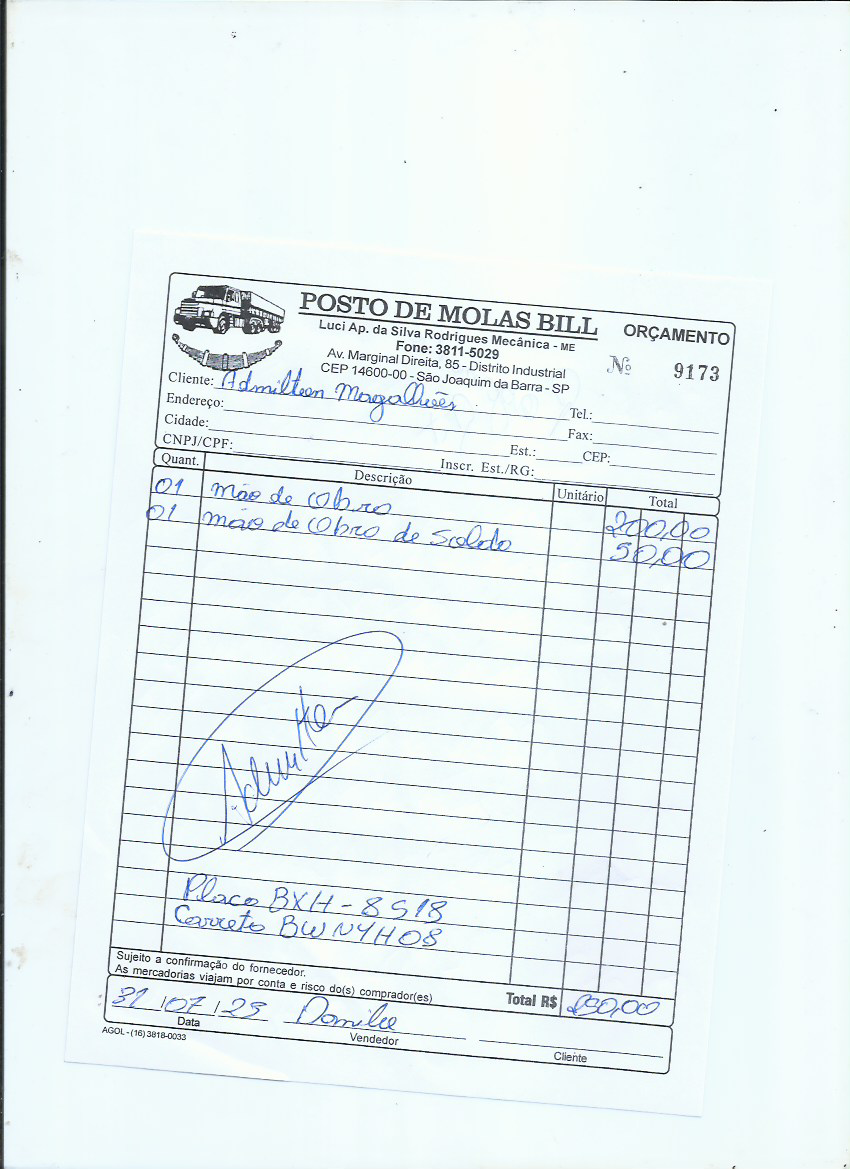 POSTO DE MOLAS BILL
ORÇAMENTO
Luci Ap. da Silva Rodrigues Mecânica - ME
Fone: 3811-5029
Av. Marginal Direita, 85 - Distrito Industrial
CEP 14600-00 - São Joaquim da Barra - SP
Nº 9173
Cliente: Admilton Magalhães
Endereço: Tel.:
Cidade: Fax:
CNPJ/CPF: Est.: CEP:
Inscr. Est./RG:
Quant. Descrição Unitário Total
01 Mão de Obra 200,00
01 Mão de Obra de Solda 50,00
Admilton
Placa BXH-8518
Carreta BWN4H08
Sujeito a confirmação do fornecedor.
As mercadorias viajam por conta e risco do(s) comprador(es)
Total R$ 250,00
31/07/23 Danilo
Data Vendedor Cliente
AGOL - (16) 3818-0033